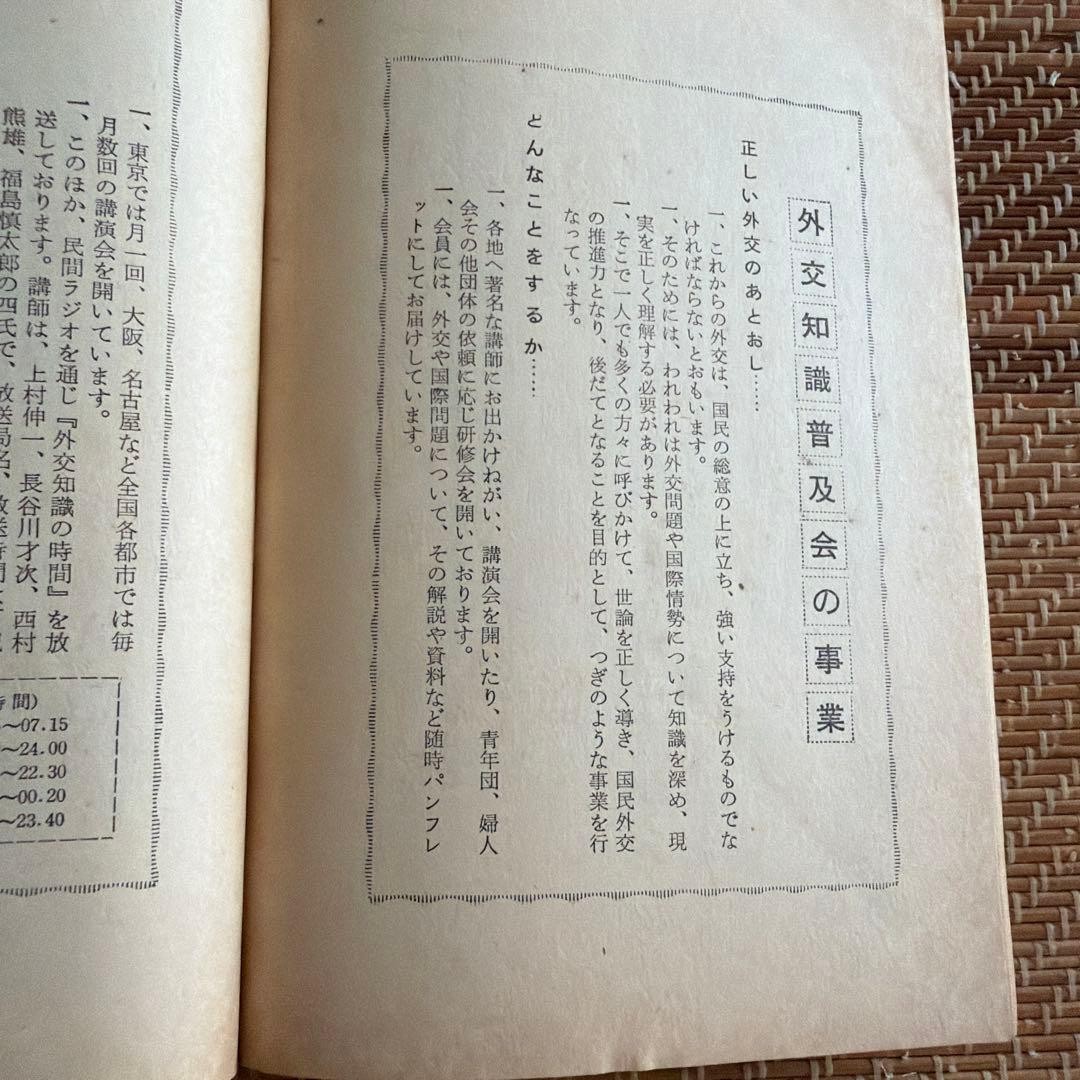 外交知識普及会の事業
正しい外交のあとおし……
一、これからの外交は、国民の総意の上に立ち、強い支持をうけるものでな
ければならないとおもいます。
一、そのためには、われわれは外交問題や国際情勢について知識を深め、現
実を正しく理解する必要があります。
一、そこで一人でも多くの方々に呼びかけて、世論を正しく導き、国民外交
の推進力となり、後だてとなることを目的として、つぎのような事業を行
なっています。
どんなことをするか……
一、各地へ著名な講師にお出かけねがい、講演会を開いたり、青年団、婦人
会その他団体の依頼に応じ研修会を開いております。
一、会員には、外交や国際問題について、その解説や資料など随時パンフレ
ットにしてお届けしています。
一、東京では月一回、大阪、名古屋など全国各都市では毎
月数回の講演会を開いています。
一、このほか、民間ラジオを通じ『外交知識の時間』を放
送しております。講師は、上村伸一、長谷川才次、西村
熊雄、福島慎太郎の四氏で、放送局名、放送時間
間)
～07.15
～24.00
～22.30
～00.20
～23.40